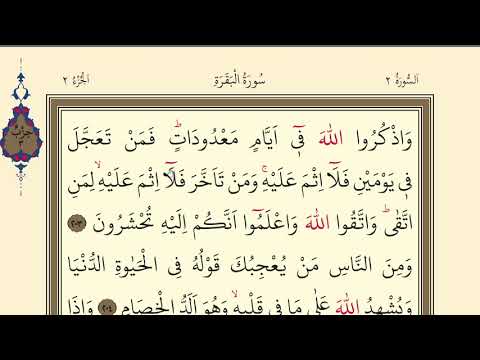 اَلسُّورَةُ ٢ سُورَةُ الْبَقَرَةِ اَلْجُزْءُ ٢
حِزْبٌ
٣
وَاذْكُرُوا اللّٰهَ ف۪ٓي اَيَّامٍ مَعْدُودَاتٍۜ فَمَنْ تَعَجَّلَ
ف۪ي يَوْمَيْنِ فَلَٓا اِثْمَ عَلَيْهِۚ وَمَنْ تَاَخَّرَ فَلَٓا اِثْمَ عَلَيْهِۙ لِمَنِ
اتَّقٰىۜ وَاتَّقُوا اللّٰهَ وَاعْلَمُٓوا اَنَّكُمْ اِلَيْهِ تُحْشَرُونَ ﴿٢٠٣﴾
وَمِنَ النَّاسِ مَنْ يُعْجِبُكَ قَوْلُهُ فِي الْحَيٰوةِ الدُّنْيَا
وَيُشْهِدُ اللّٰهَ عَلٰى مَا ف۪ي قَلْبِه۪ۙ وَهُوَ اَلَدُّ الْخِصَامِ ﴿٢٠٤﴾ وَاِذَا